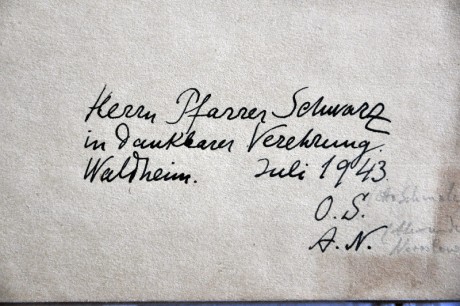 Herrn Pfarrer Schwarz
in dankbarer Verehrung.
Waldheim. Juli 1943
O. S.
A. N.